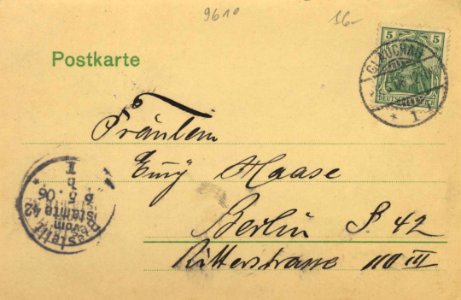 9610
16-
Postkarte
5 5
GLAUCHAU
* 1
Fräulein
Emy Haase
Berlin S. 42
Ritterstrasse 110 III
Bestellt
vom
Postamte 42
6 5.06